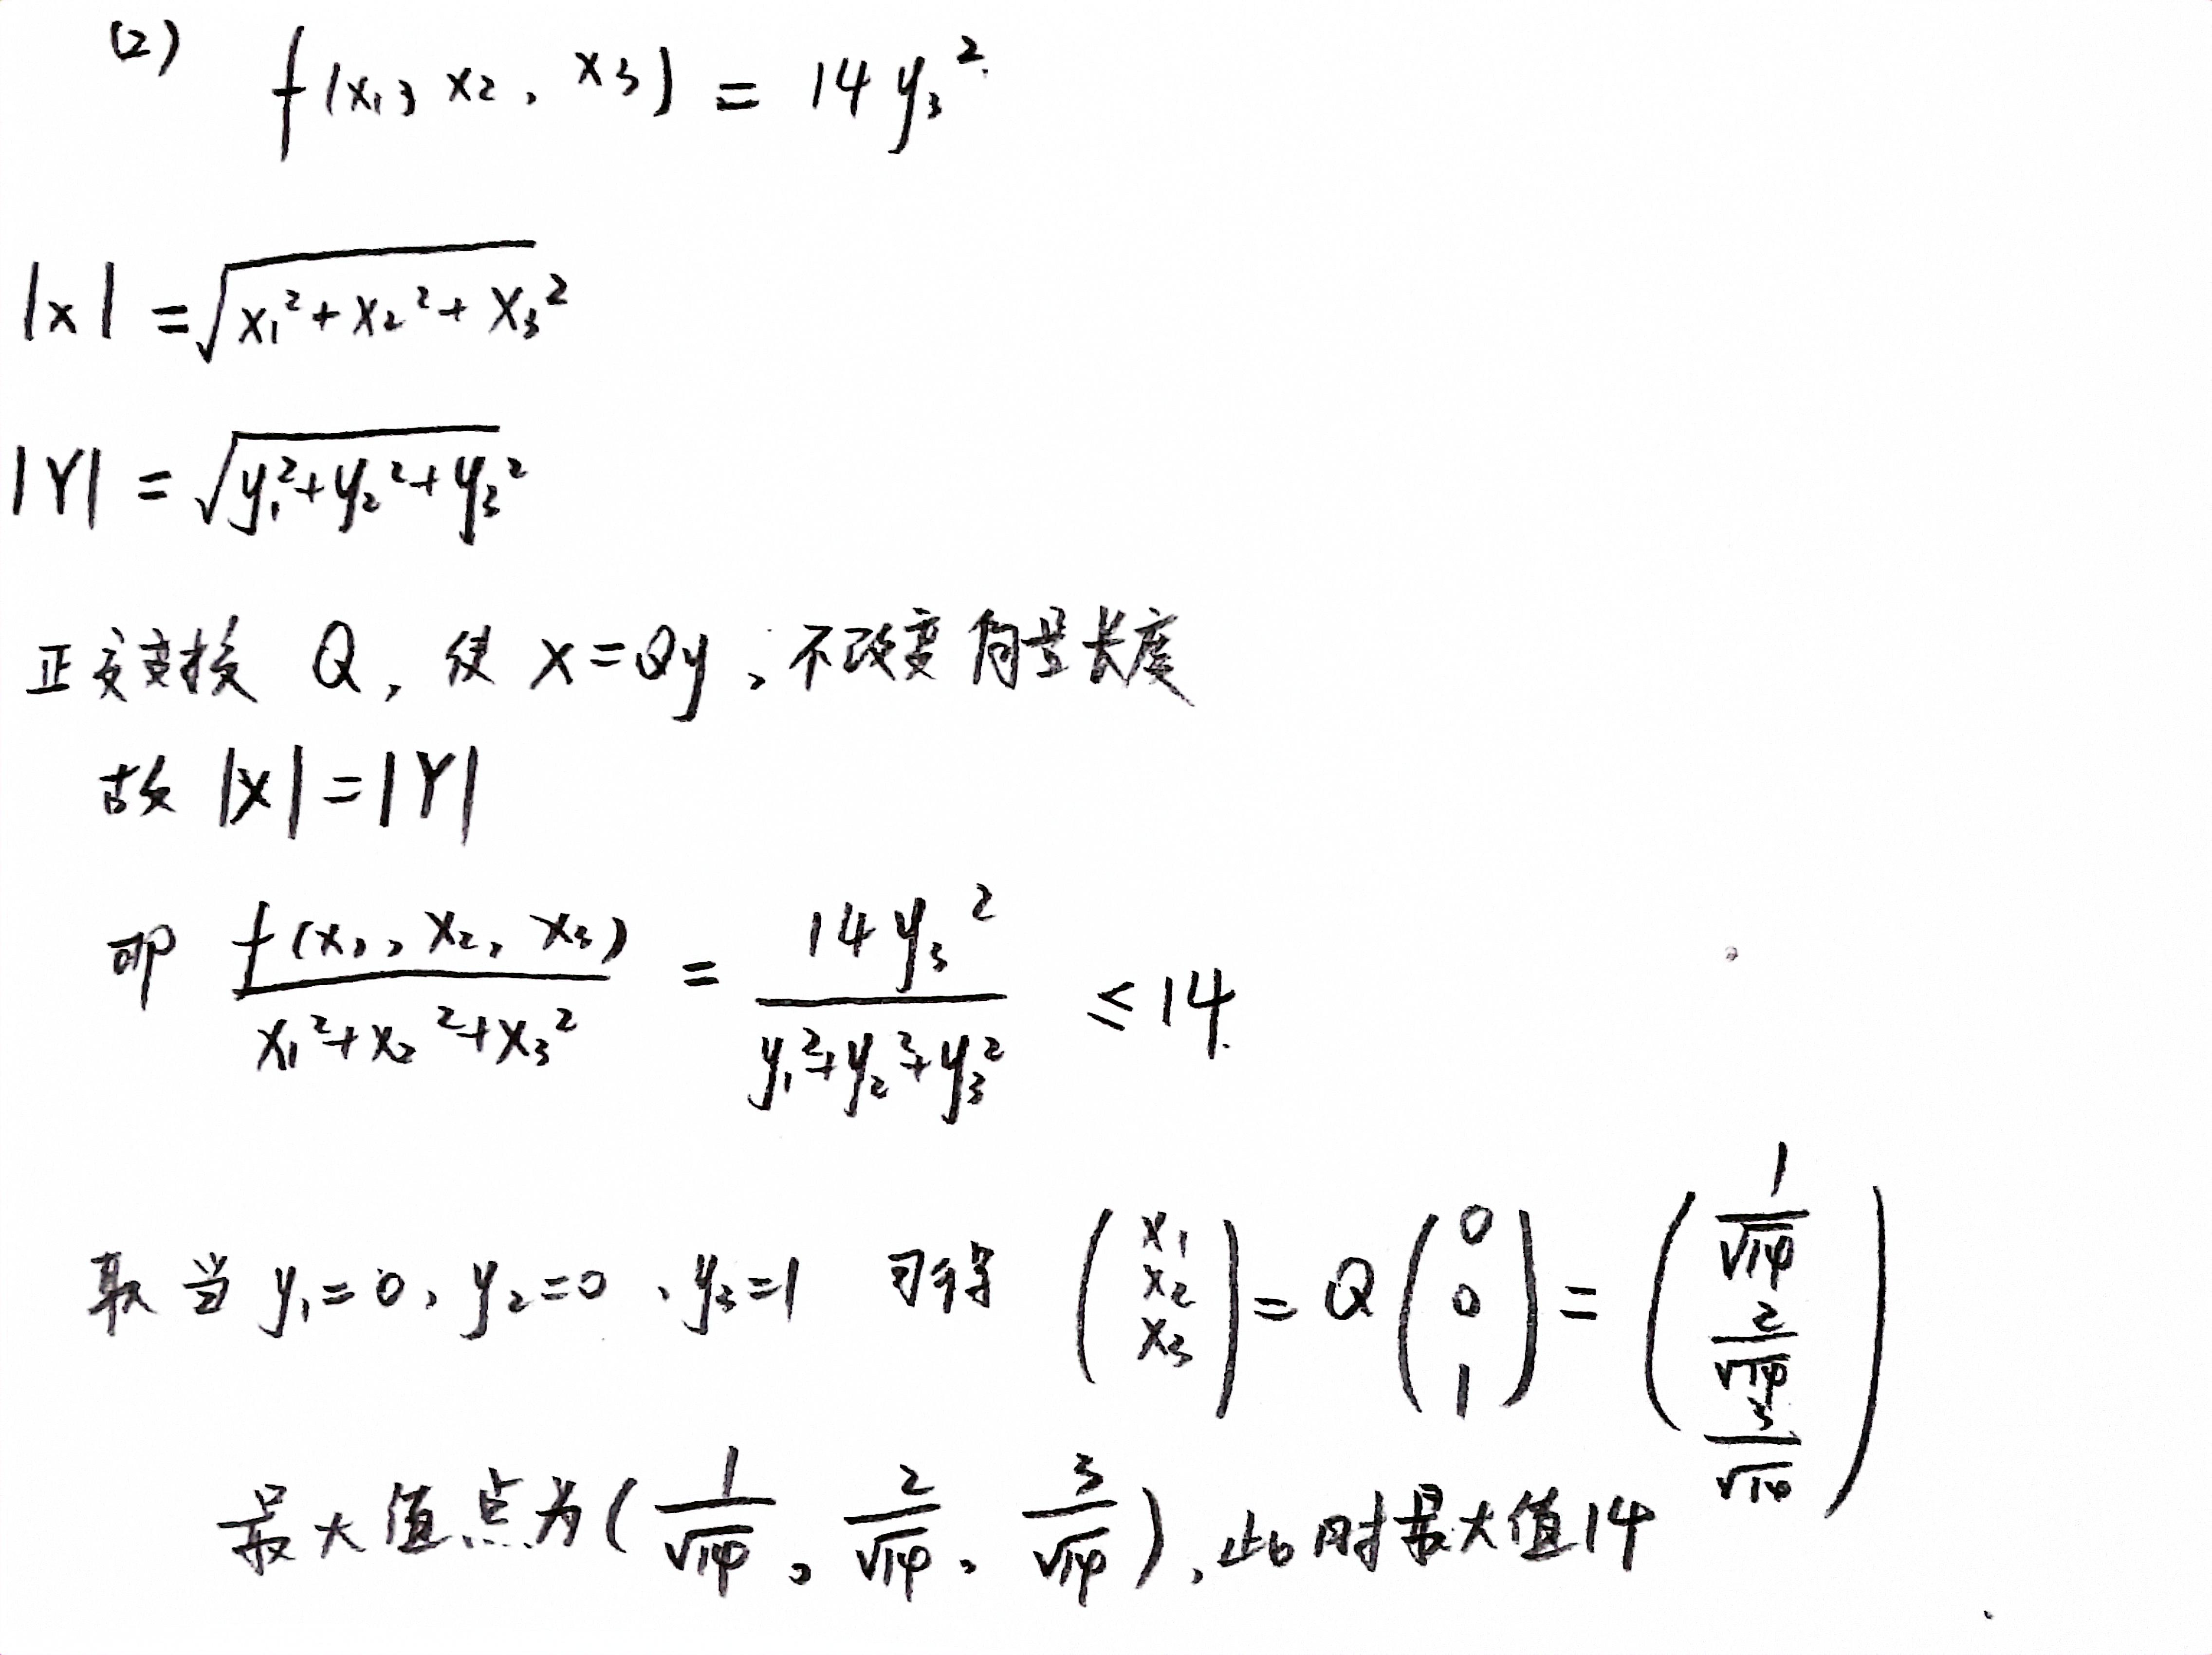 (2) f(x₁, x₂, x₃) = 14y₃²
|x| = √(x₁²+x₂²+x₃²)
|Y| = √(y₁²+y₂²+y₃²)
正交变换 Q, 使 x=Qy, 不改变向量长度
故 |X|=|Y|
即 f(x₁, x₂, x₃)/(x₁²+x₂²+x₃²) = 14y₃²/(y₁²+y₂²+y₃²) ≤14.
取当 y₁=0, y₂=0, y₃=1 可得 (x₁ x₂ x₃) = Q (0 0 1) = (1/√14 2/√14 3/√14)
最大值点为(1/√14, 2/√14, 3/√14), 此时最大值14